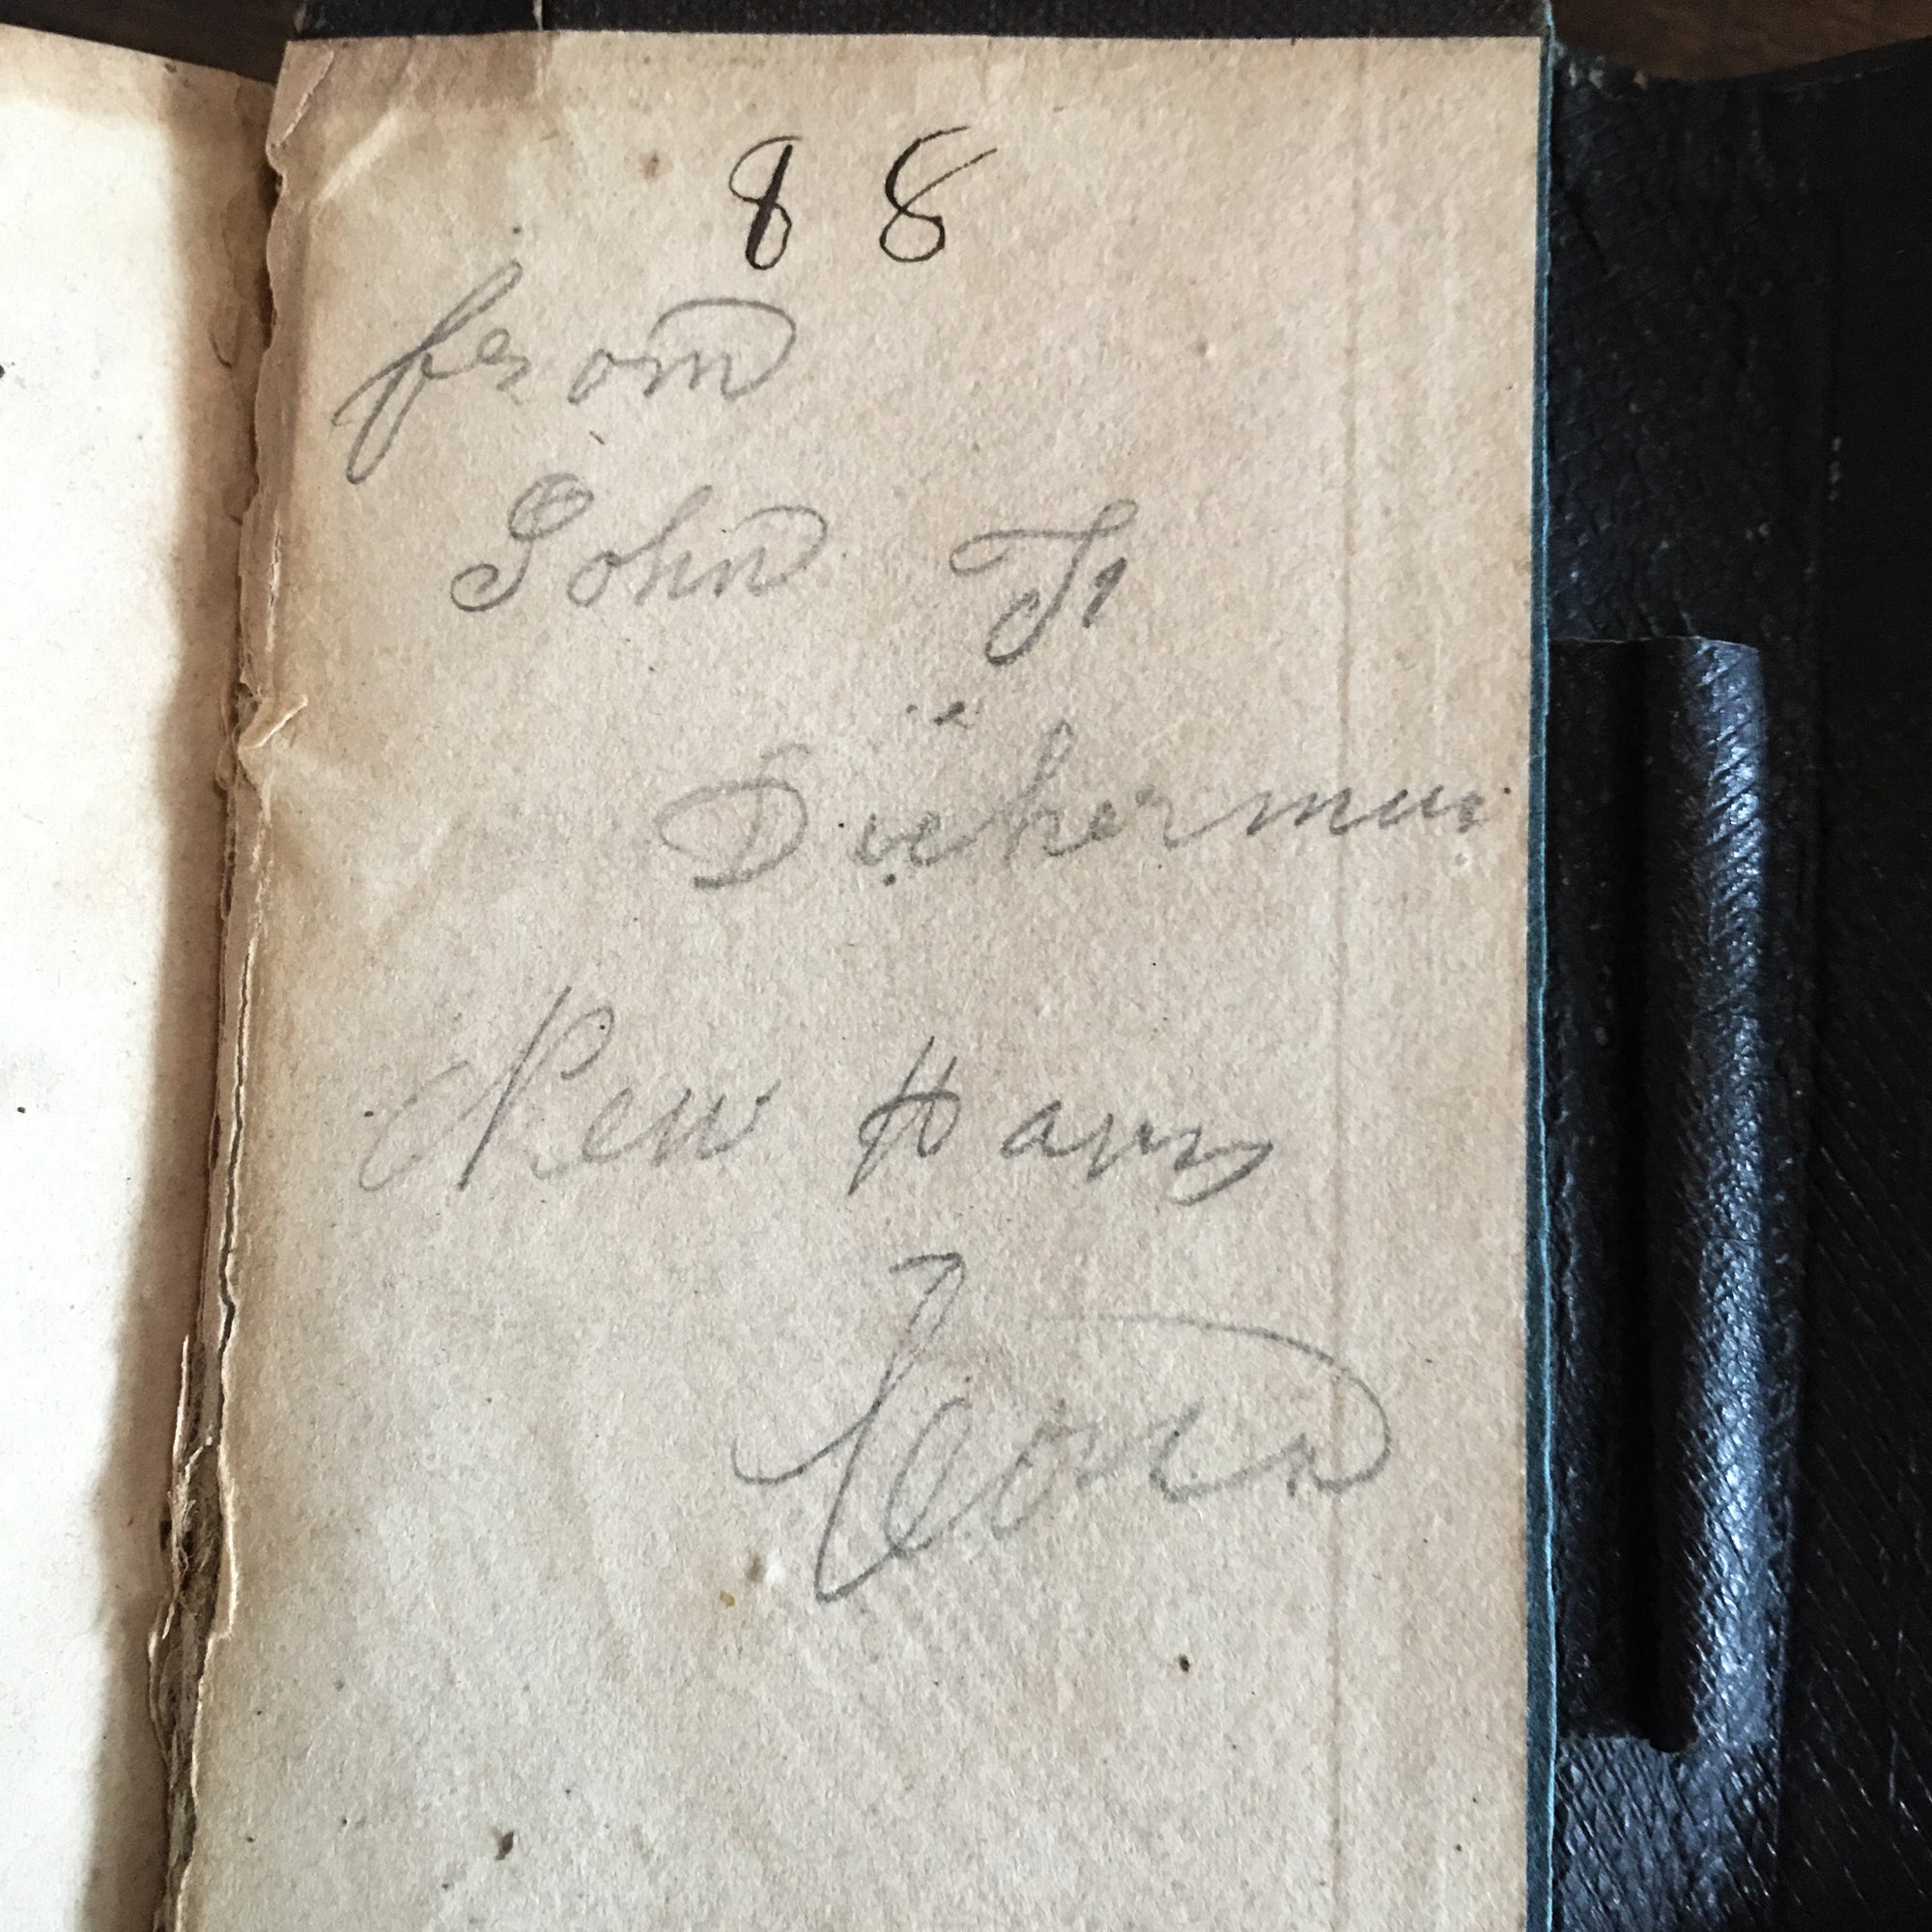 88
from
John F.
Dickerman
New Haven
Conn